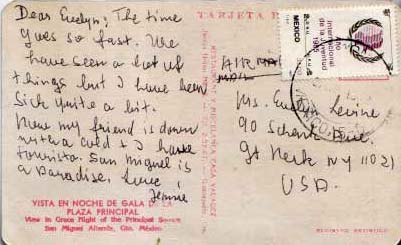 Dear Evelyn, The time
goes so fast. We
have seen a lot of
things but I have been
sick quite a bit.
Now my friend is down
with a cold + I have
tourista. San Miguel is
a Paradise. Love
VISTA EN NOCHE DE GALA DE LA
PLAZA PRINCIPAL
View in Grace Night of the Principal Square
San Miguel Allende, Gto. México
TARJETA
AIR MAIL
MEXICO
internacional
de la juventud
Ms. Evelyn Levine
90 Schenck Ave.
Gt Neck NY 11021
USA